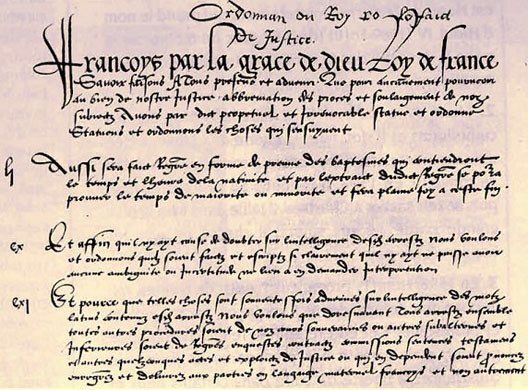 Ordonnan du Roy
de Justice.
Francoys par la grace de dieu Roy de france
Scavoir faisons A tous presens et advenir Que pour aucunement pourveoir
au bien de nostre Justice abbreviation des proces et soulagement de noz
subiectz Avons par edit perpetuel et Irrevocable statue et ordonne
Statuons et ordonnons les choses qui sensuyvent
li Aussi sera faict Regre en forme de preuve des baptesmes qui contiendront
le temps et lheure de la nativite et par lextraict dudict Regre se porra
prouver le temps de maiorite ou minorite et fera plaine foy a ceste fin
cx Et affin quil ny ayt cause de doubter sur lintelligence desd arrestz Nous voulons
et ordonnons quilz soient faictz et escriptz si clairement quil ny ayt ne puisse avoir
aucune ambiguite ou Incertitude ne lieu a en demander Interpretation
cxi Et pource que telles choses sont souventesfois advenues sur lintelligence des motz
latins contenuz esd arrestz Nous voulons que doresnavant Tous arrestz ensemble
toutes autres procedures soient de noz cours souveraines ou autres subalternes et
Inferieures soient de Regres enquestes contractz commissions sentences testamens
et autres quelzconques actes et exploictz de Justice ou qui en dependent soient prononcez
enregrez et delivrez aux parties en langage maternel francoys et non autrement